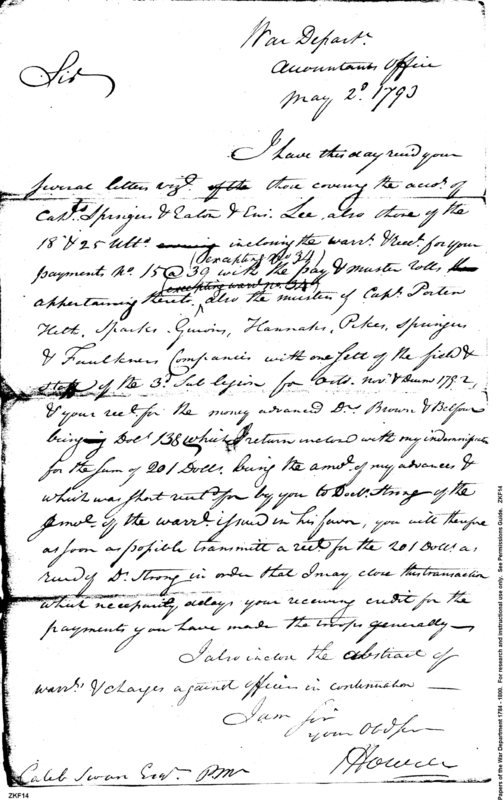 War Depart.
Accountants Office
May 2d. 1793
Sir
I have this day recd your
several letters vizt. of the those covering the accos. of
Capts. Springers & Eaton & Ens. Lee, also those of the
18 & 25 Ulto. inclosing the warrts. & Rects. for your
(excepting no 34)
payments No. 15 @ 39 with the pay & muster rolls
(excepting warrt. no 34)
appertaining thereto, also the musters of Capts. Porter
Heth, Sparks, Guions, Hannahs, Pikes, Springers
& Faulkners Companies with one sett of the field &
staff of the 3d. Sub legion for Octo. Novr. & Decem 1792,
& your rect. for the money advanced Drs. Brown & Balfour
being Dols 138 which I return inclosed with my
for the sum of 201 Dolls. being the amot. of my advances &
which was short rect. for by you to Doctr. Strong of the
amot. of the warrt. issued in his favor, you will therefore
as soon as possible transmitt a rect for the 201 Dolls. as
recd of Dr. Strong in order that I may close this transaction
what necessarily delays your receiving credit for the
payments you have made the troops generally—
I also inclose the abstract of
warrts. & charges against officers in continuation —
I am Sir
your Obd Ser
J Howell
Caleb Swan Esqr. P.M.
ZKF14
Papers of the War Department 1784 - 1800. For research and instructional use only. See Permissions Guide. ZKF14